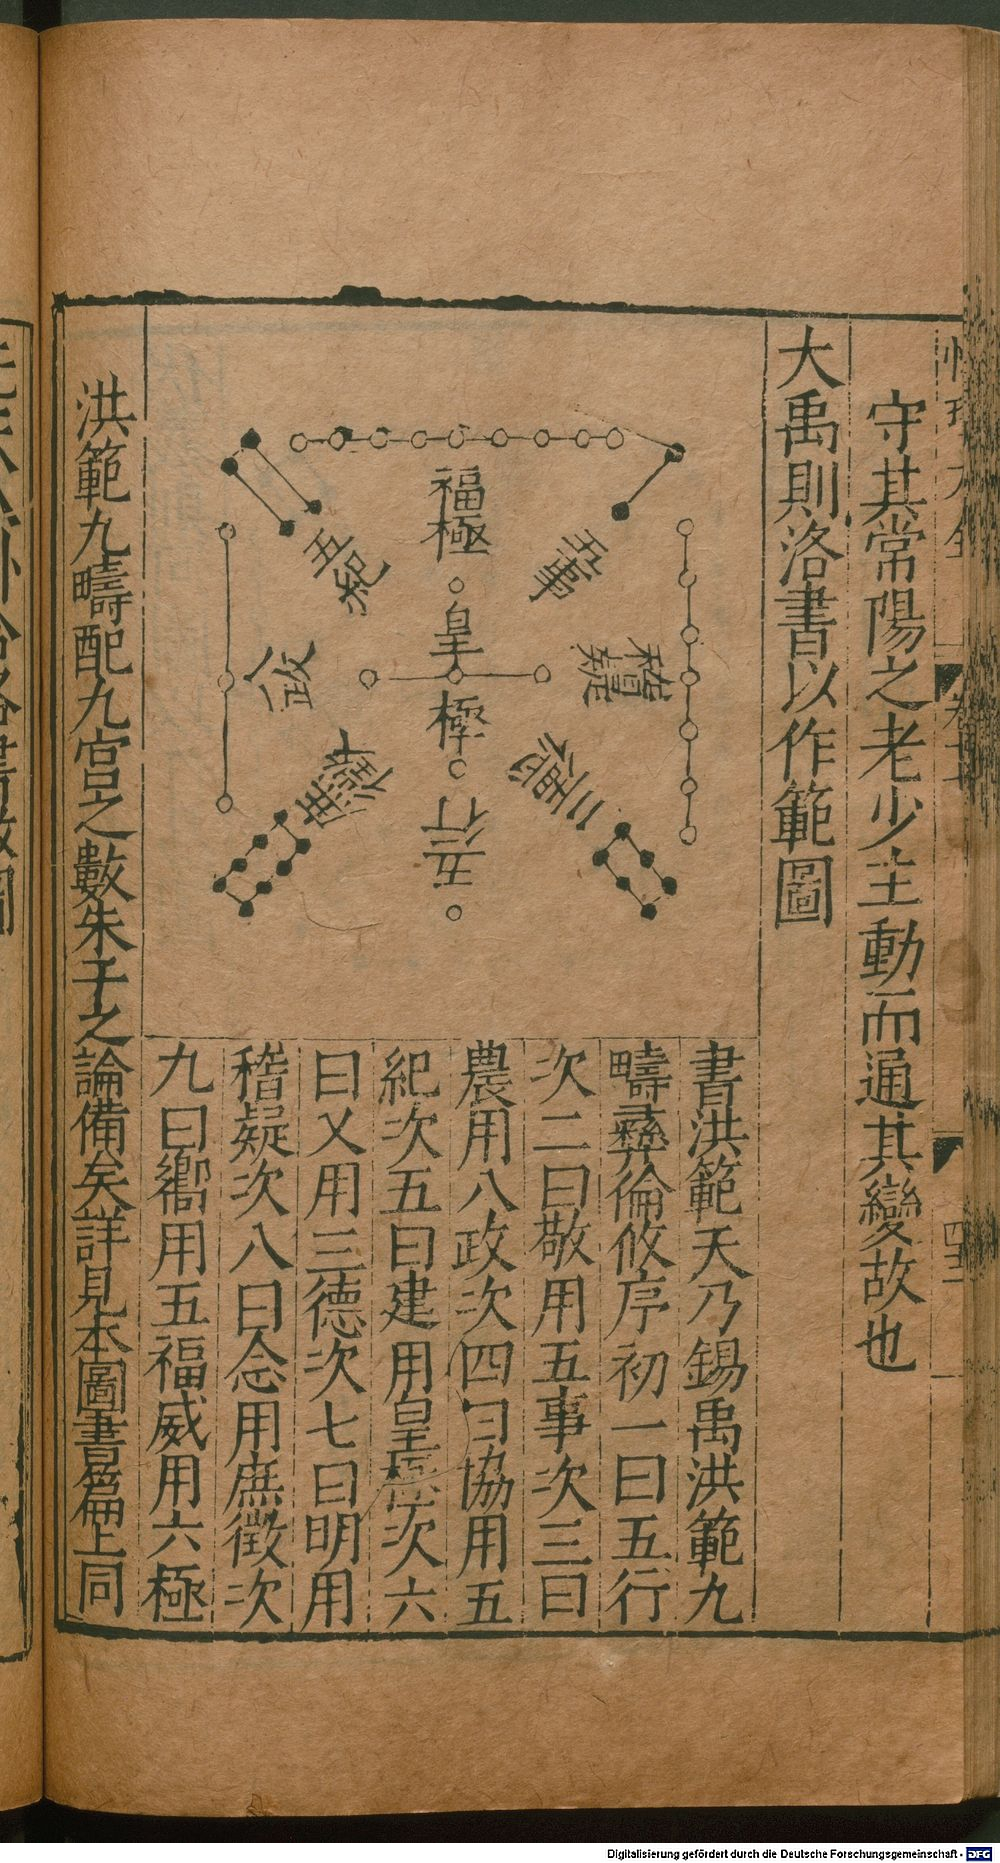 守其常陽之老少主動而通其變故也
大禹則洛書以作範圖
福極
五事
五紀
稽疑
皇極
八政
三德
庶徵
五行
書洪範天乃錫禹洪範九
疇彝倫攸序初一曰五行
次二曰敬用五事次三曰
農用八政次四曰協用五
紀次五曰建用皇極次六
曰乂用三德次七曰明用
稽疑次八曰念用庶徵次
九曰嚮用五福威用六極
洪範九疇配九宮之數朱子之論備矣詳見本圖書篇上同
Digitalisierung gefördert durch die Deutsche Forschungsgemeinschaft - DFG